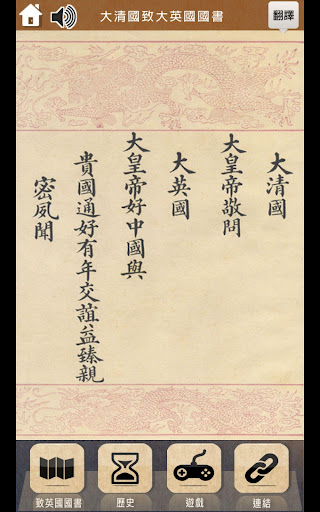 大清國致大英國國書
翻譯
大清國
大皇帝敬問
大英國
大皇帝好中國與
貴國通好有年交誼益臻親
密夙聞
致英國國書
歷史
遊戲
連結